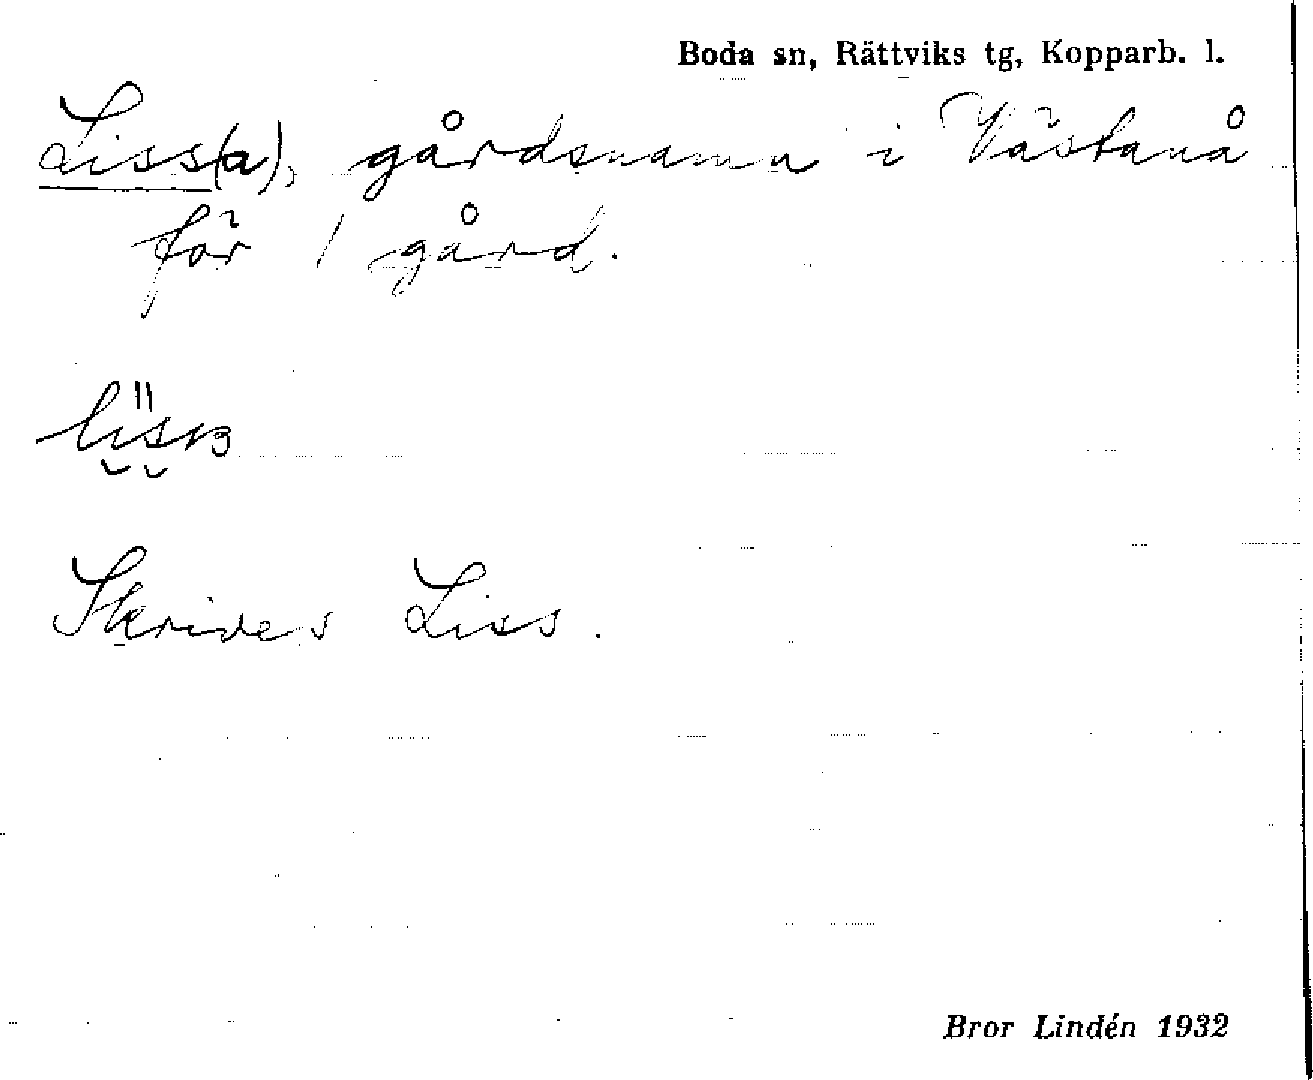 Boda sn, Rättviks tg, Kopparb. l.
Liss(a), gårdsnamn i Västanå
för 1 gård.
Skrives Liss.
Bror Lindén 1932